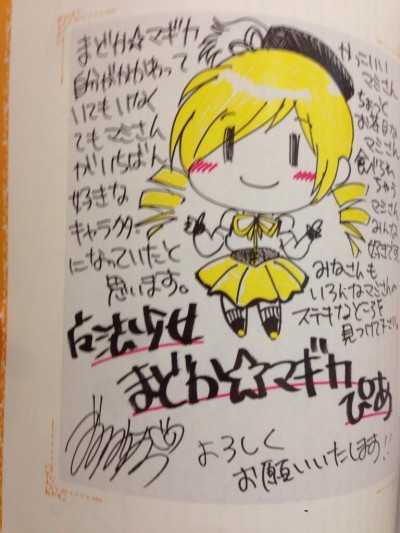 まどか☆マギカ
自分がかかわって
いてもいなく
てもマミさん
がいちばん
好きな
キャラクター
になっていたと
思います。
かっこいい
マミさん
ちょっと
お茶目な
マミさん
食べられ
ちゃう
マミさん
みんな
好きです
みなさんも
いろんなマミさんの
ステキなところを
見つけて下さい。
魔法少女
まどか☆マギカ
ぴあ
よろしく
お願いいたします!!